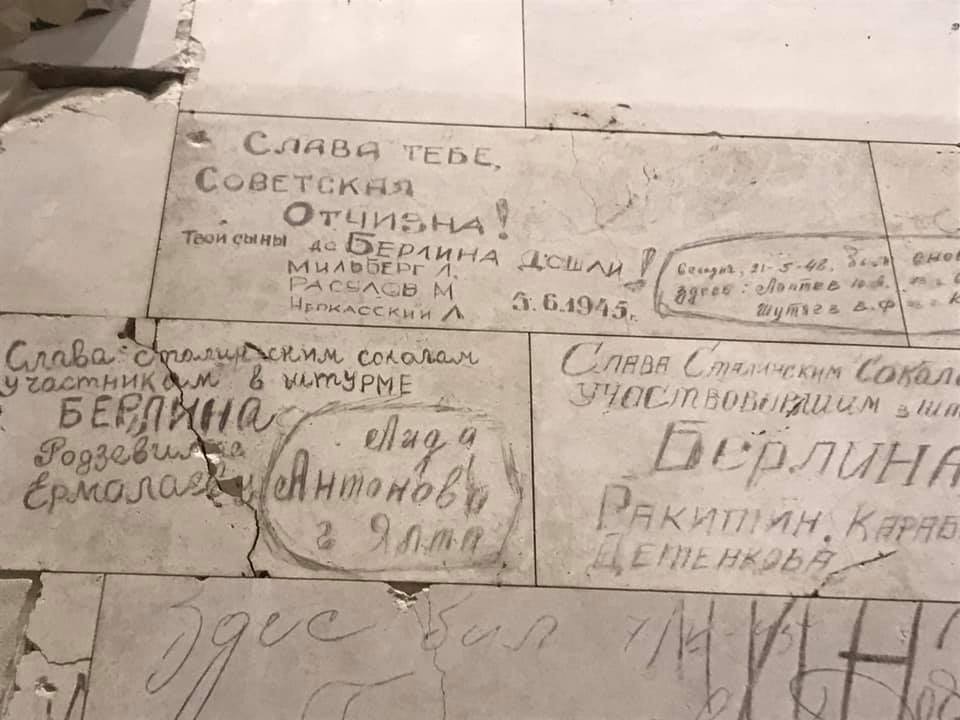 СЛАВА ТЕБЕ,
СОВЕТСКАЯ
ОТЧИЗНА!
Твои сыны до БЕРЛИНА ДОШЛИ!
МИЛЬБЕРГ Л.
РАСУЛОВ М
ЧЕРКАССКИЙ Л
5.6.1945г.
21-5-48. были
здесь: Лаптев
Шутяев В.Ф
Слава Сталинским соколам
участникам в штурме
БЕРЛИНА
Лида
Антонова
г Ялта
СЛАВА СТАЛИНСКИМ СОКОЛА
УЧАСТВОВАВШИМ в шт
БЕРЛИНА
РАКИТИН. КАРАБ
ДЕТЕНКОВА
Здес бил